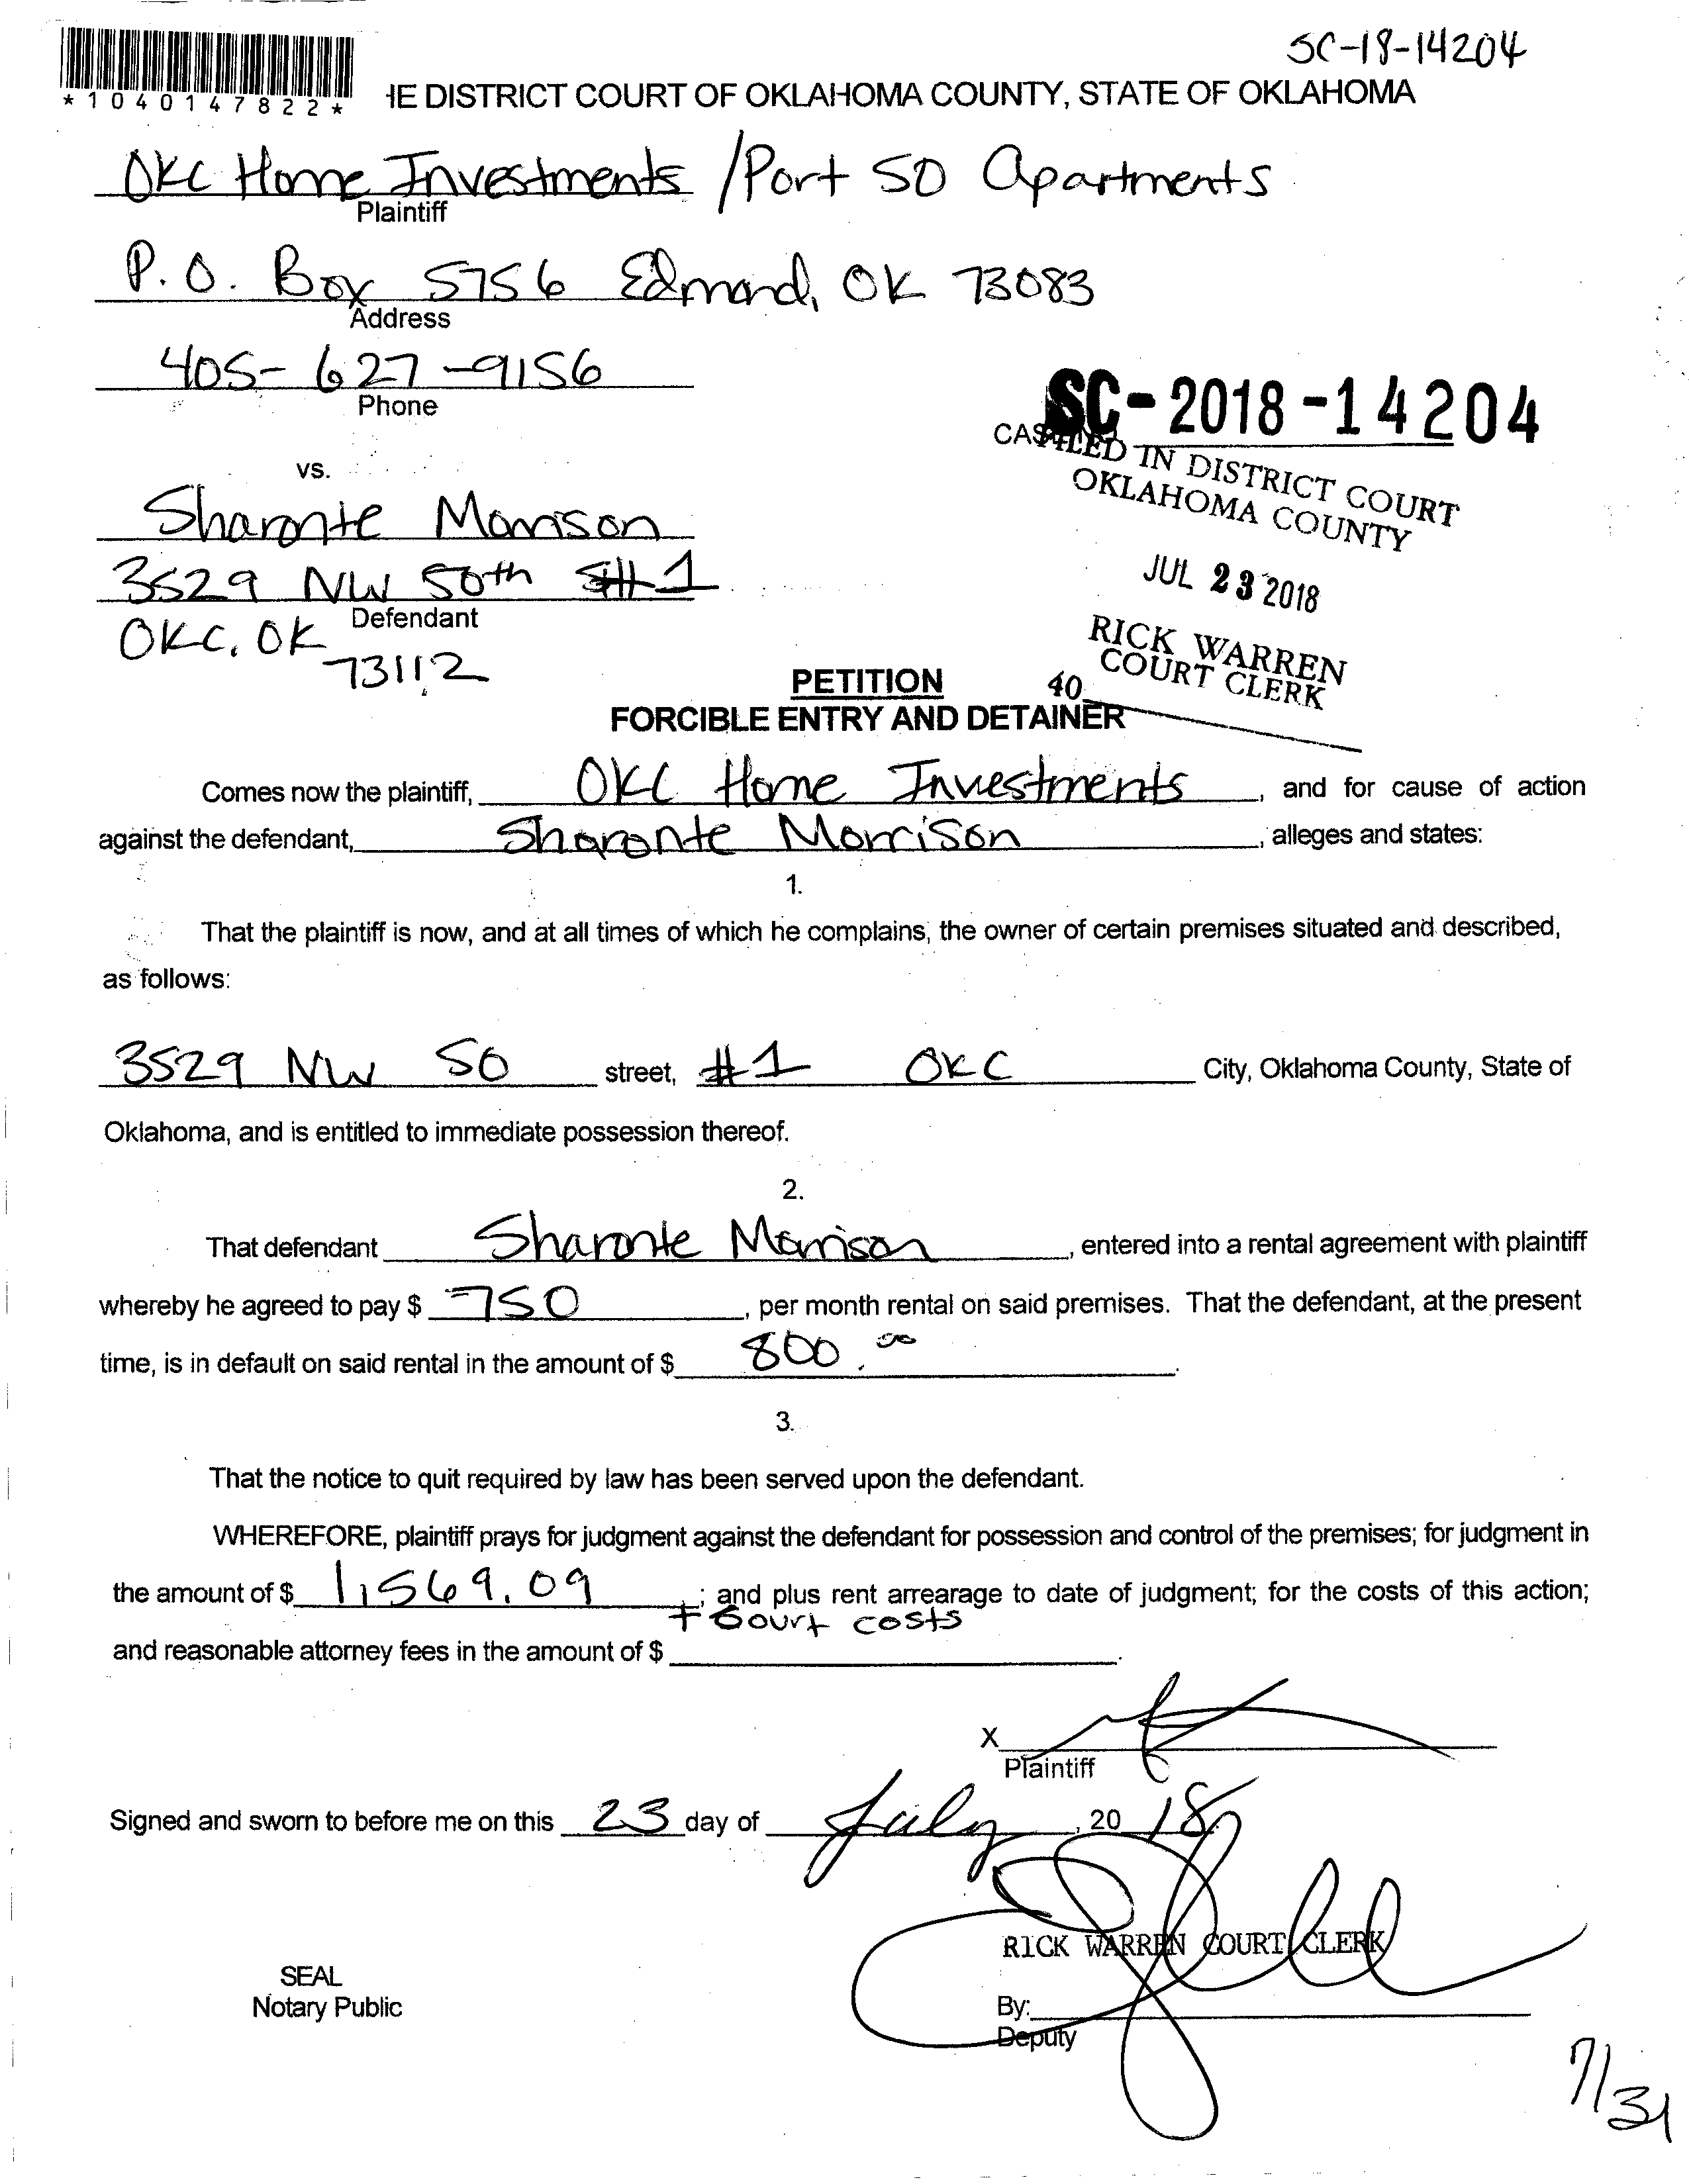 SC-18-14204
*1040147822*
HE DISTRICT COURT OF OKLAHOMA COUNTY, STATE OF OKLAHOMA
OKC Home Investments / Port 50 Apartments
Plaintiff
P.O. Box 5756 Edmond, OK 73083
Address
405-627-9156
Phone
SC-2018-14204
FILED IN DISTRICT COURT
OKLAHOMA COUNTY
vs.
Sharonte Morrison
3529 NW 50th #1
Defendant
OKC, OK
73112
JUL 23 2018
RICK WARREN
COURT CLERK
40
PETITION
FORCIBLE ENTRY AND DETAINER
Comes now the plaintiff, OKC Home Investments, and for cause of action
against the defendant, Sharonte Morrison, alleges and states:
1.
That the plaintiff is now, and at all times of which he complains, the owner of certain premises situated and described,
as follows:
3529 NW 50 street, #1 OKC City, Oklahoma County, State of
Oklahoma, and is entitled to immediate possession thereof.
2.
That defendant Sharonte Morrison, entered into a rental agreement with plaintiff
whereby he agreed to pay $ 750, per month rental on said premises. That the defendant, at the present
time, is in default on said rental in the amount of $ 800.00.
3.
That the notice to quit required by law has been served upon the defendant.
WHEREFORE, plaintiff prays for judgment against the defendant for possession and control of the premises; for judgment in
the amount of $ 1,569.09; and plus rent arrearage to date of judgment; for the costs of this action;
+ Court costs
and reasonable attorney fees in the amount of $ .
X
Plaintiff
Signed and sworn to before me on this 23 day of July, 20 18
RICK WARREN COURT CLERK
SEAL
Notary Public
By:
Deputy
7/31